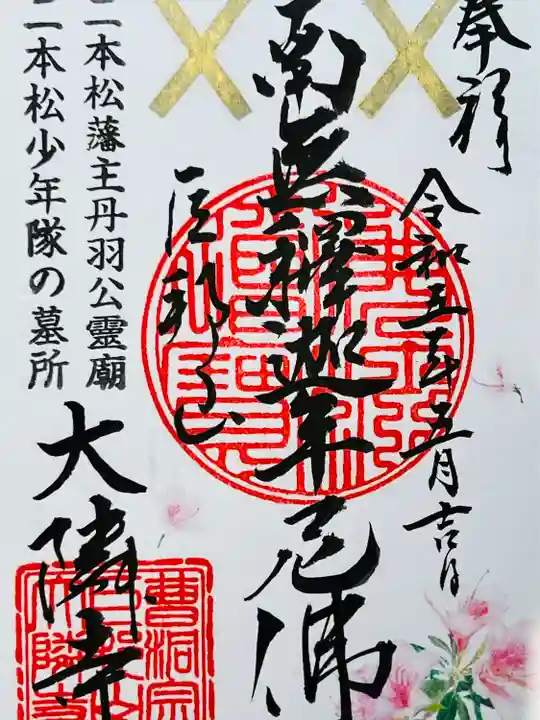 奉拝
令和五年五月吉日
南無釋迦牟尼佛
巨邦山
大隣寺
二本松藩主丹羽公霊廟
二本松少年隊の墓所
曹洞宗